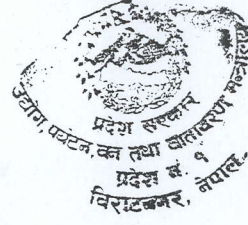 प्रदेश सरकार
उद्योग, पर्यटन, वन तथा वातावरण मन्त्रालय
प्रदेश नं. १
विराटनगर, नेपाल.